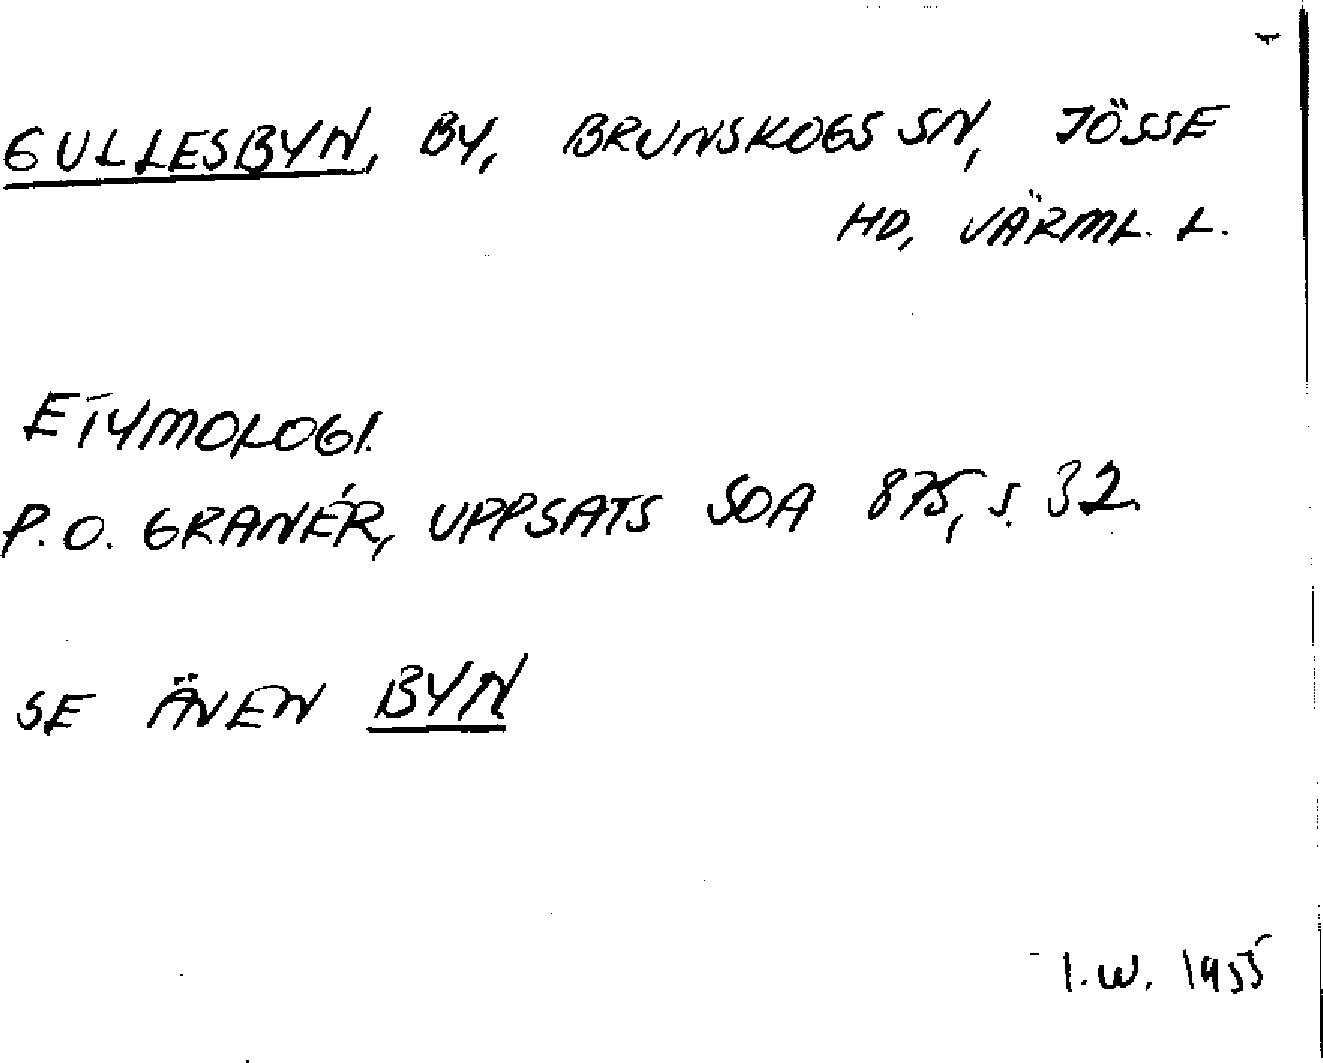 GULLESBYN, BY, BRUNSKOGS SN, JÖSSE
HD, VÄRML. L.
ETYMOLOGI.
P.O. GRANÉR, UPPSATS SOA 875, S. 32.
SE ÄVEN BYN
I.W. 1955